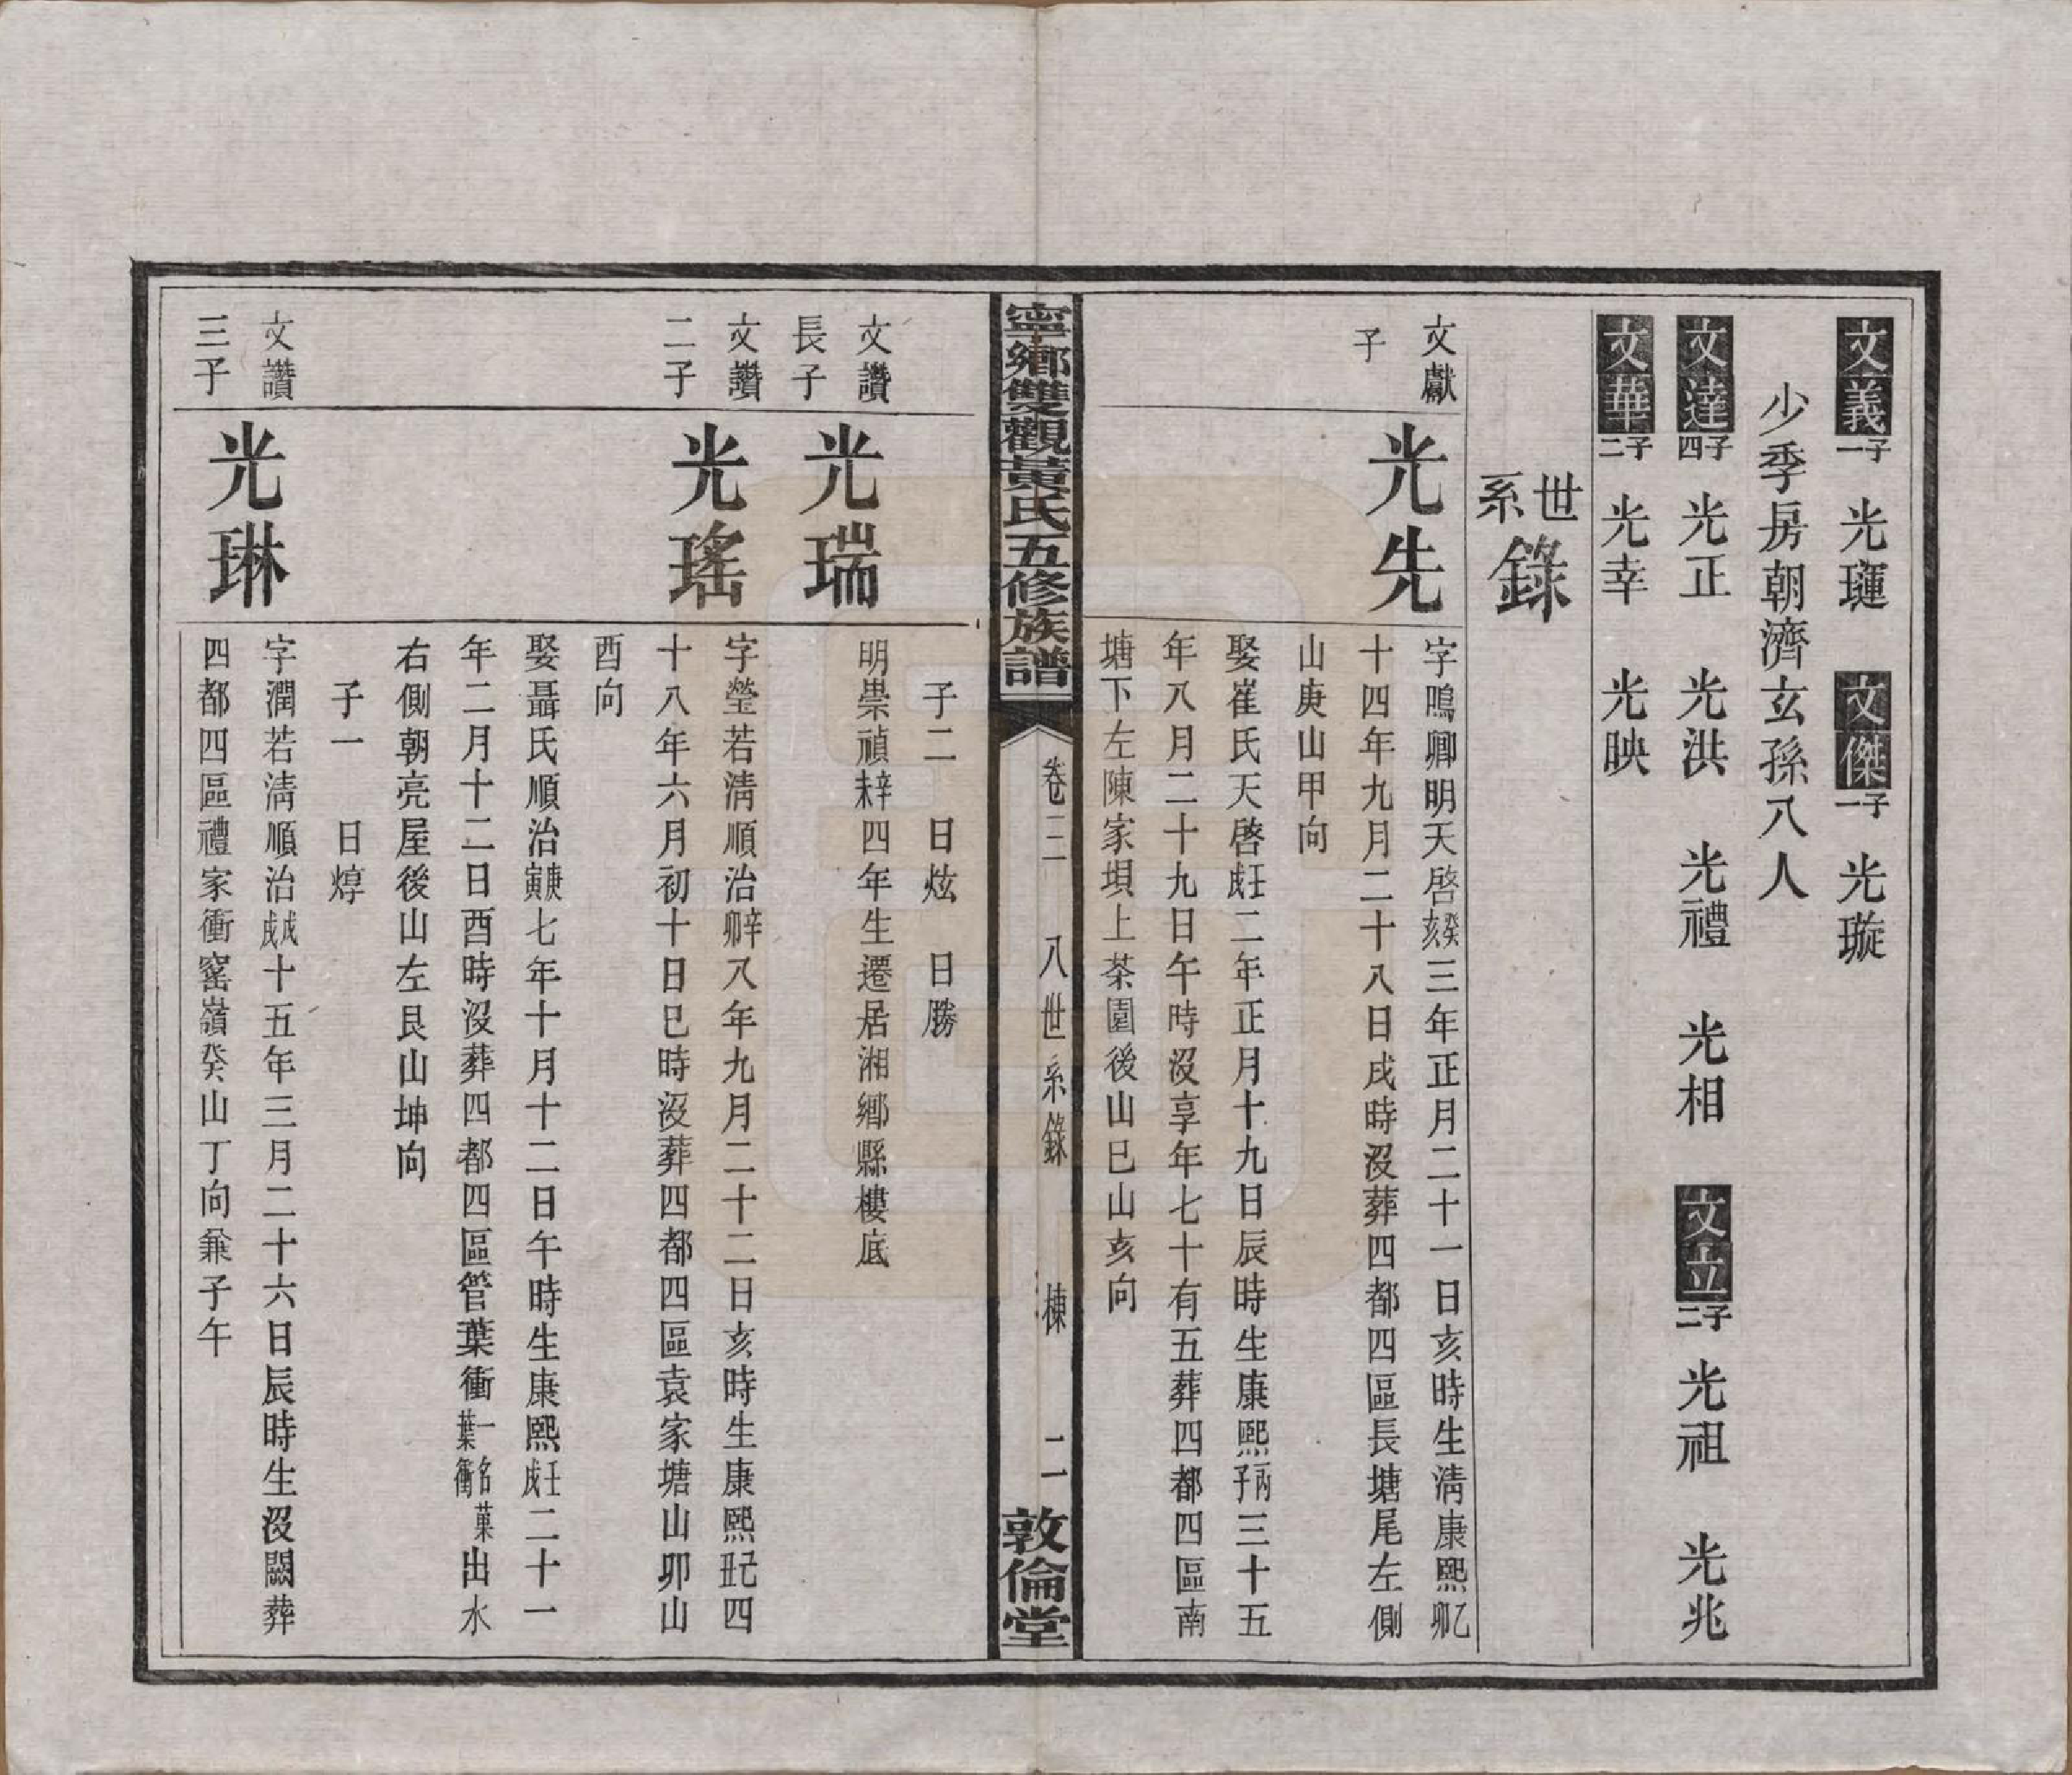 文義子一 光璉 文傑子一 光璇
少季房朝濟玄孫八人
文達子四 光正 光洪 光禮 光相 文立子二 光祖 光兆
文華子二 光幸 光映
世系錄
文獻子
光先
字鳴卿明天啓癸亥三年正月二十一日亥時生淸康熙乙卯
十四年九月二十八日戌時沒葬四都四區長塘尾左側
山庚山甲向
娶崔氏天啓壬戌二年正月十九日辰時生康熙丙子三十五
年八月二十九日午時沒享年七十有五葬四都四區南
塘下左陳家垻上茶園後山巳山亥向
寧鄉雙觀黃氏五修族譜 卷三 八世系錄 棟 二 敦倫堂
子二 日炫 日勝
文讚長子
光瑞
明崇禎辛未四年生遷居湘鄉縣樓底
文讚二子
光瑤
字瑩若淸順治辛卯八年九月二十二日亥時生康熙己丑四
十八年六月初十日巳時沒葬四都四區袁家塘山卯山
酉向
娶聶氏順治庚寅七年十月十二日午時生康熙壬戌二十一
年二月十二日酉時沒葬四都四區管葉衝一名菓葉衝出水
右側朝亮屋後山左艮山坤向
子一 日焞
文讚三子
光琳
字潤若淸順治戊戌十五年三月二十六日辰時生沒闕葬
四都四區禮家衝窰嶺癸山丁向兼子午